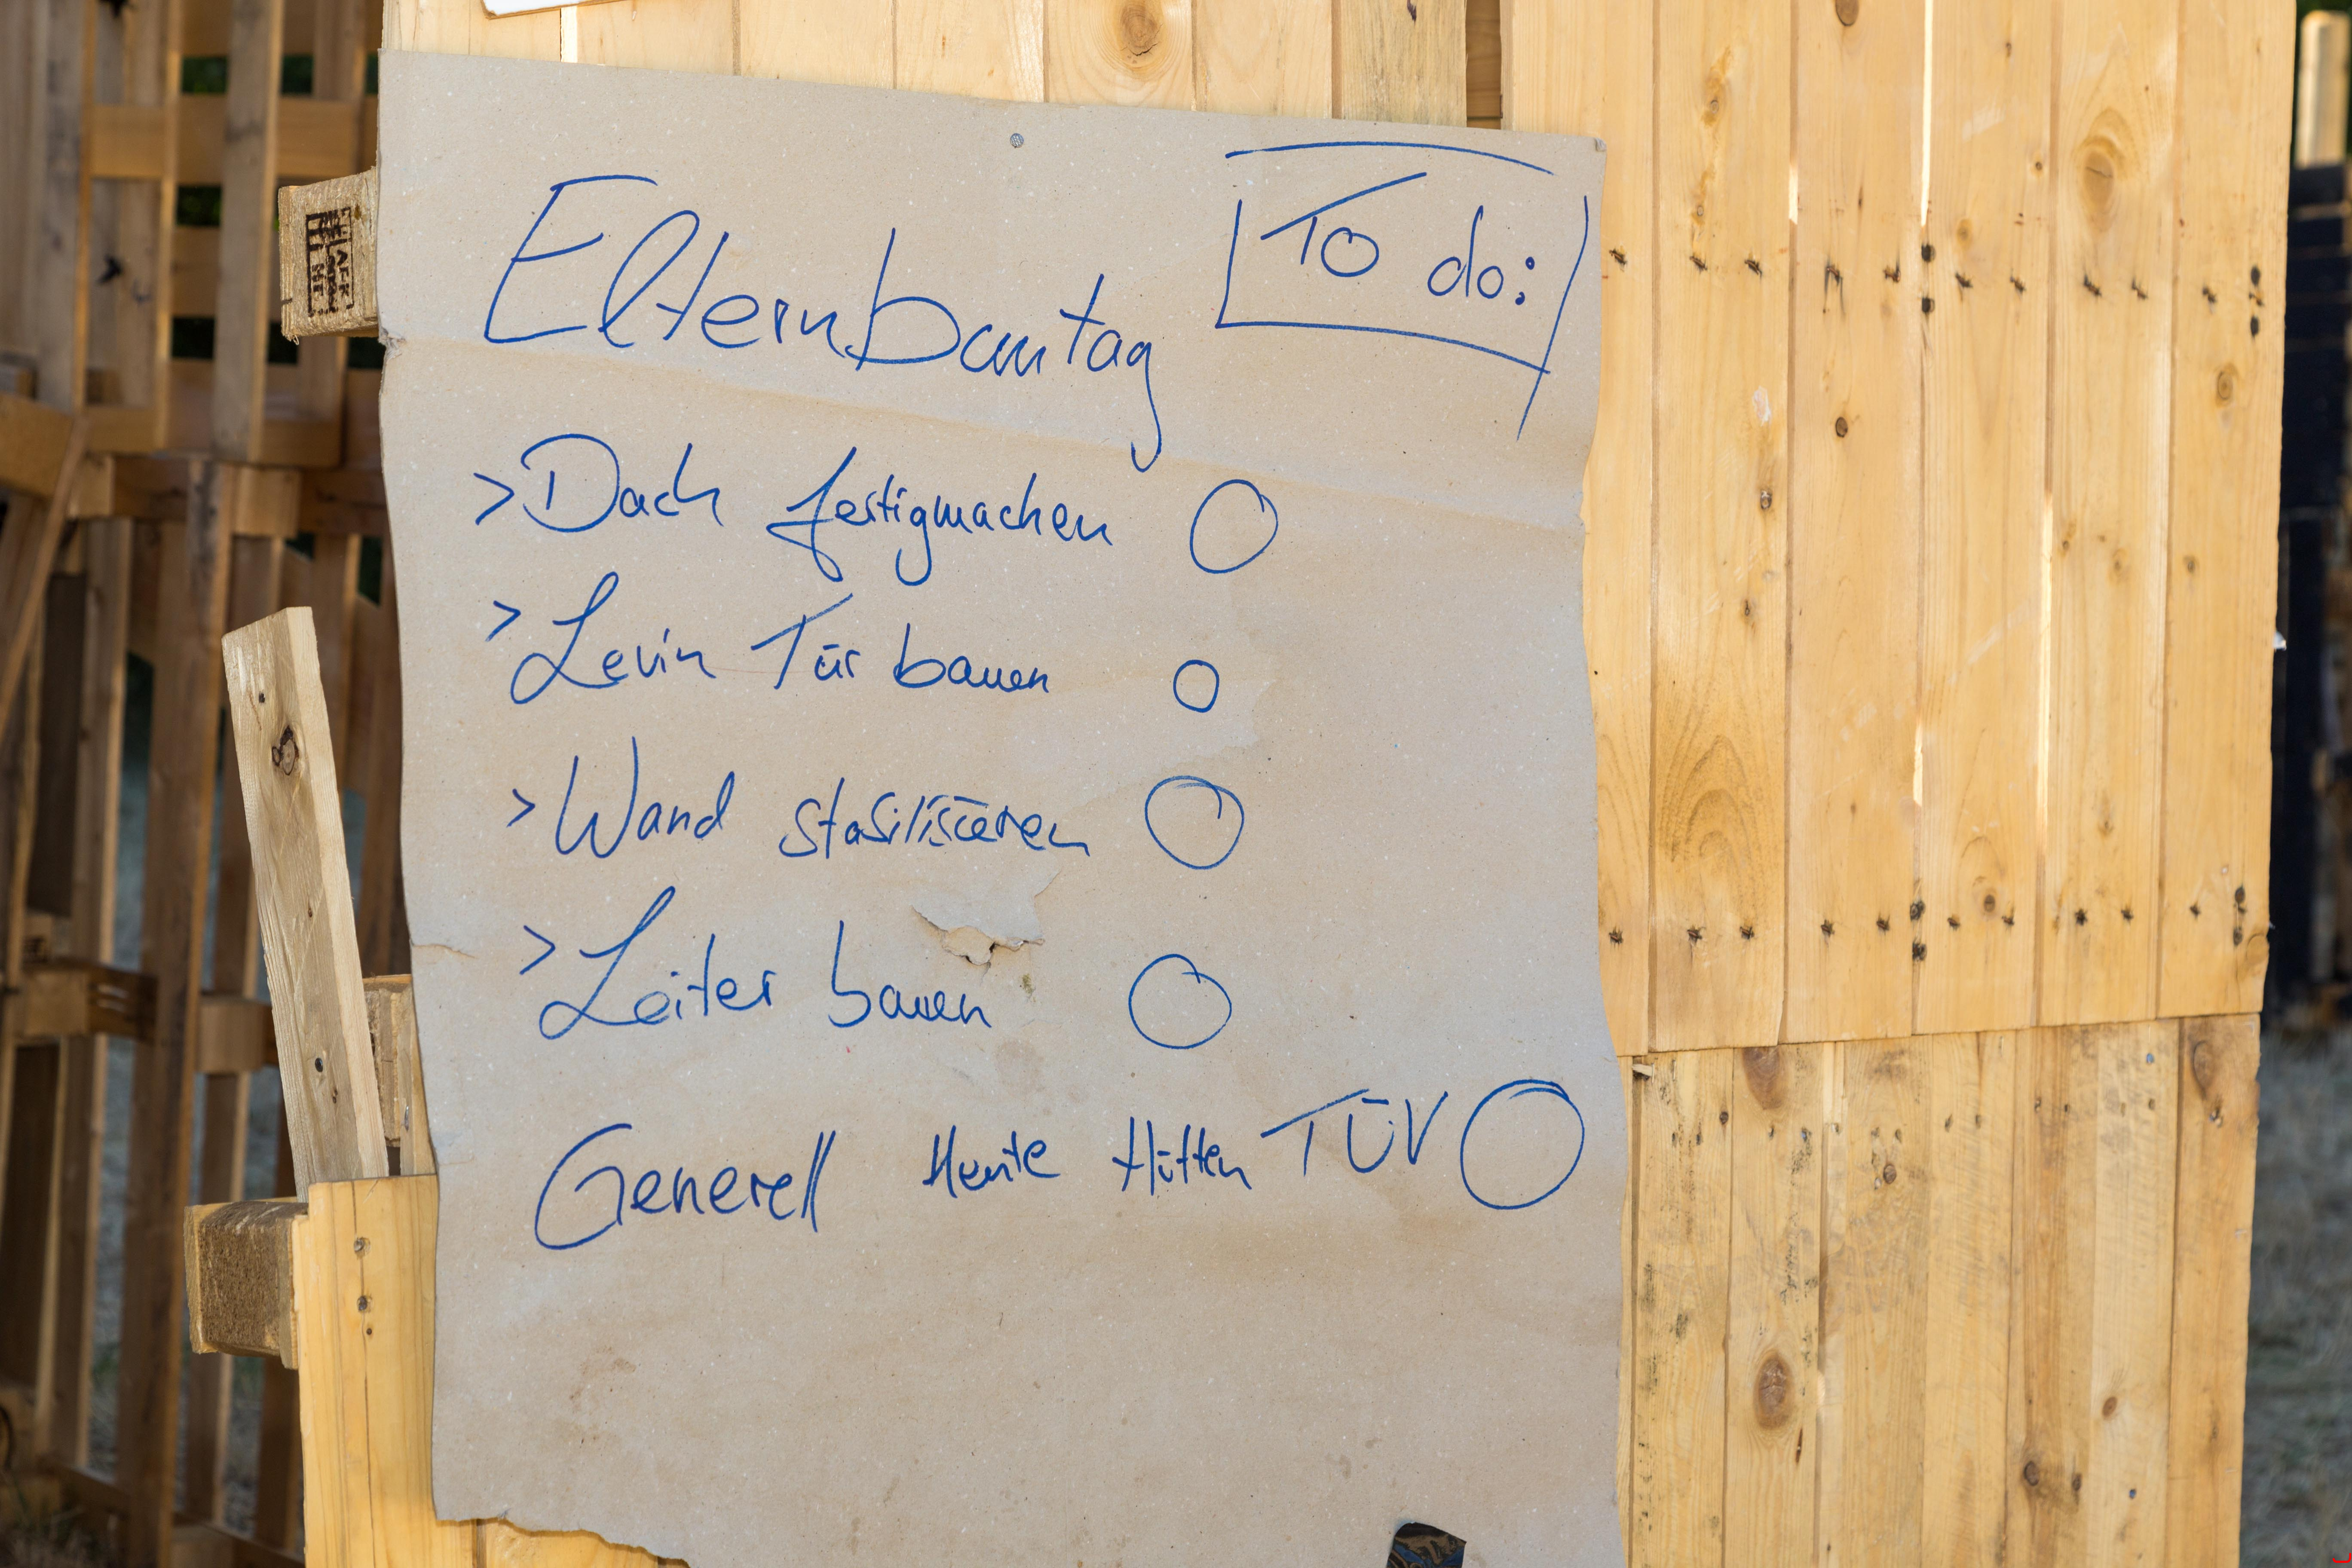 Elternbautag To do:
> Dach fertigmachen
> Levin Tür bauen
> Wand stabilisieren
> Leiter bauen
Generell Heute Hütten TÜV